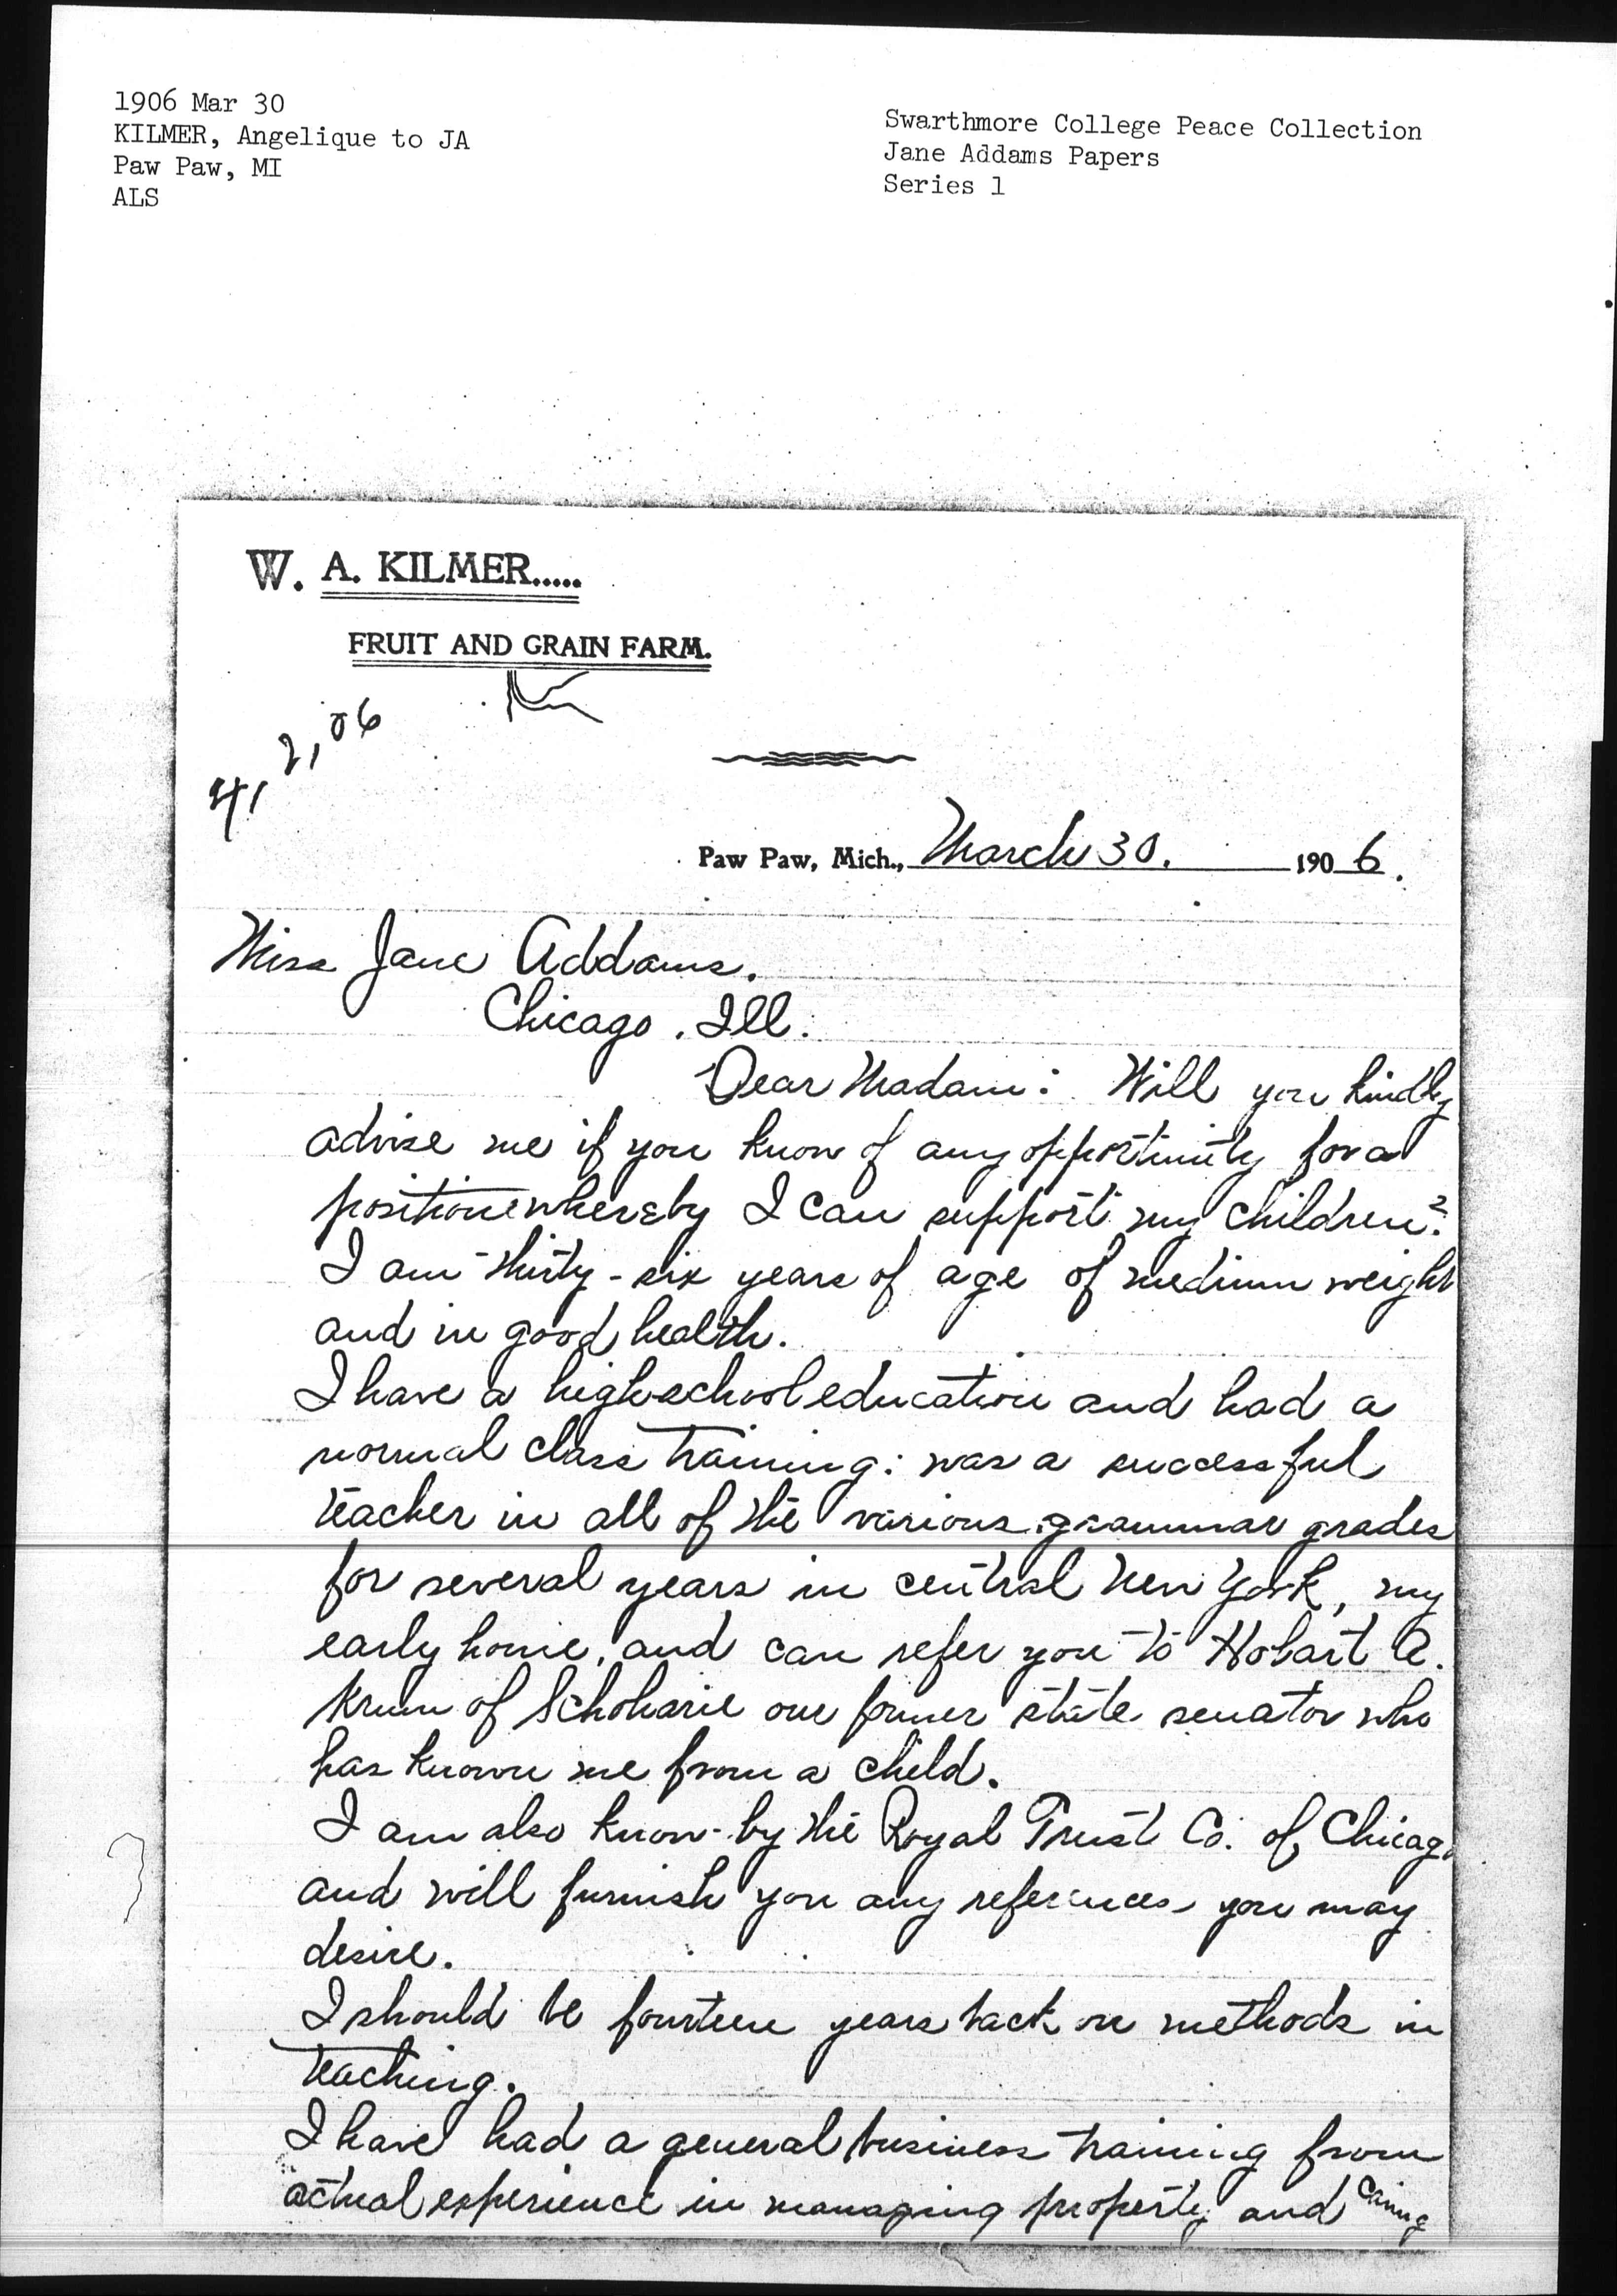 1906 Mar 30
KILMER, Angelique to JA
Paw Paw, MI
ALS
Swarthmore College Peace Collection
Jane Addams Papers
Series 1
W. A. KILMER.....
FRUIT AND GRAIN FARM.
4, 2, 06
Paw Paw, Mich., March 30. 1906.
Miss Jane Addams.
Chicago, Ill.
Dear Madam: Will you kindly
advise me if you know of any opportunity for a
position whereby I can support my children?
I am thirty-six years of age of medium weight
and in good health.
I have a high school education and had a
normal class training: was a successful
teacher in all of the various grammar grades
for several years in central New York, my
early home, and can refer you to Hobart
Krum of Schoharie our former state senator who
has known me from a child.
I am also know by the Royal Trust Co. of Chicago
and will furnish you any references you may
desire.
I should be fourteen years back on methods in
teaching.
I have had a general business training from
actual experience in managing property and caring